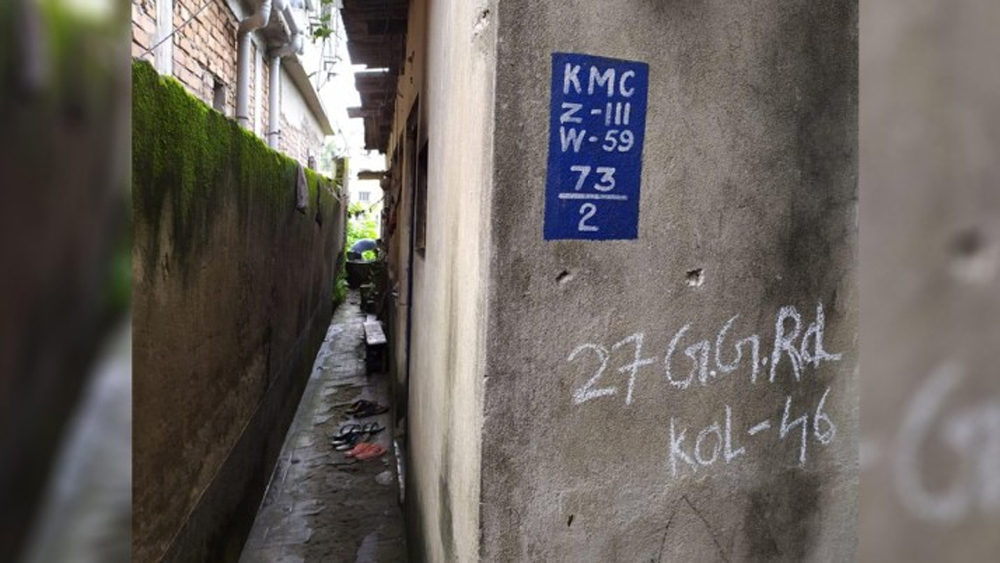 KMC
Z-III
W-59
73
2
27 G.G.Rd
KOL-46